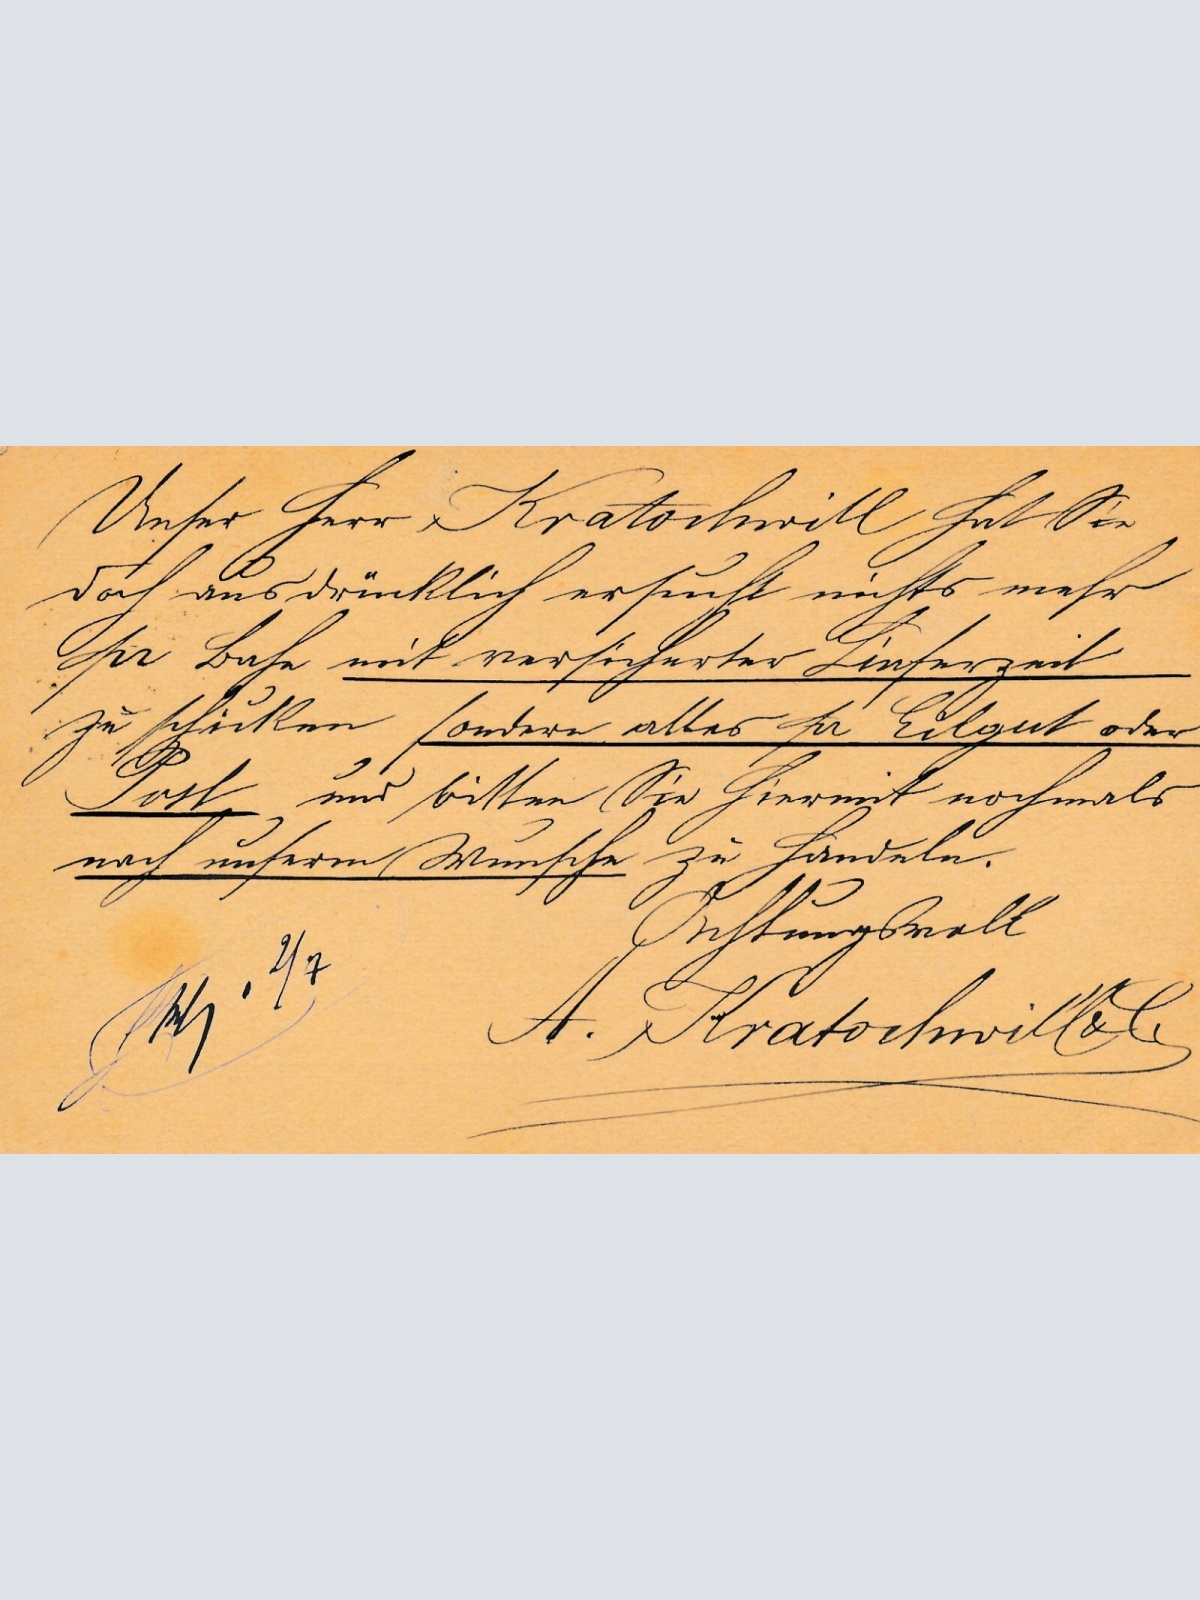 Unser Herr Kratochwill hat Sie
doch ausdrücklich ersucht nichts mehr
pr Bahn mit versicherter Lieferzeit
zu schicken sondern alles pr Eilgut oder
Post und bitten Sie hiermit nochmals
nach unserem Wunsche zu handeln.
Achtungsvoll
2/7
A. Kratochwill & C.